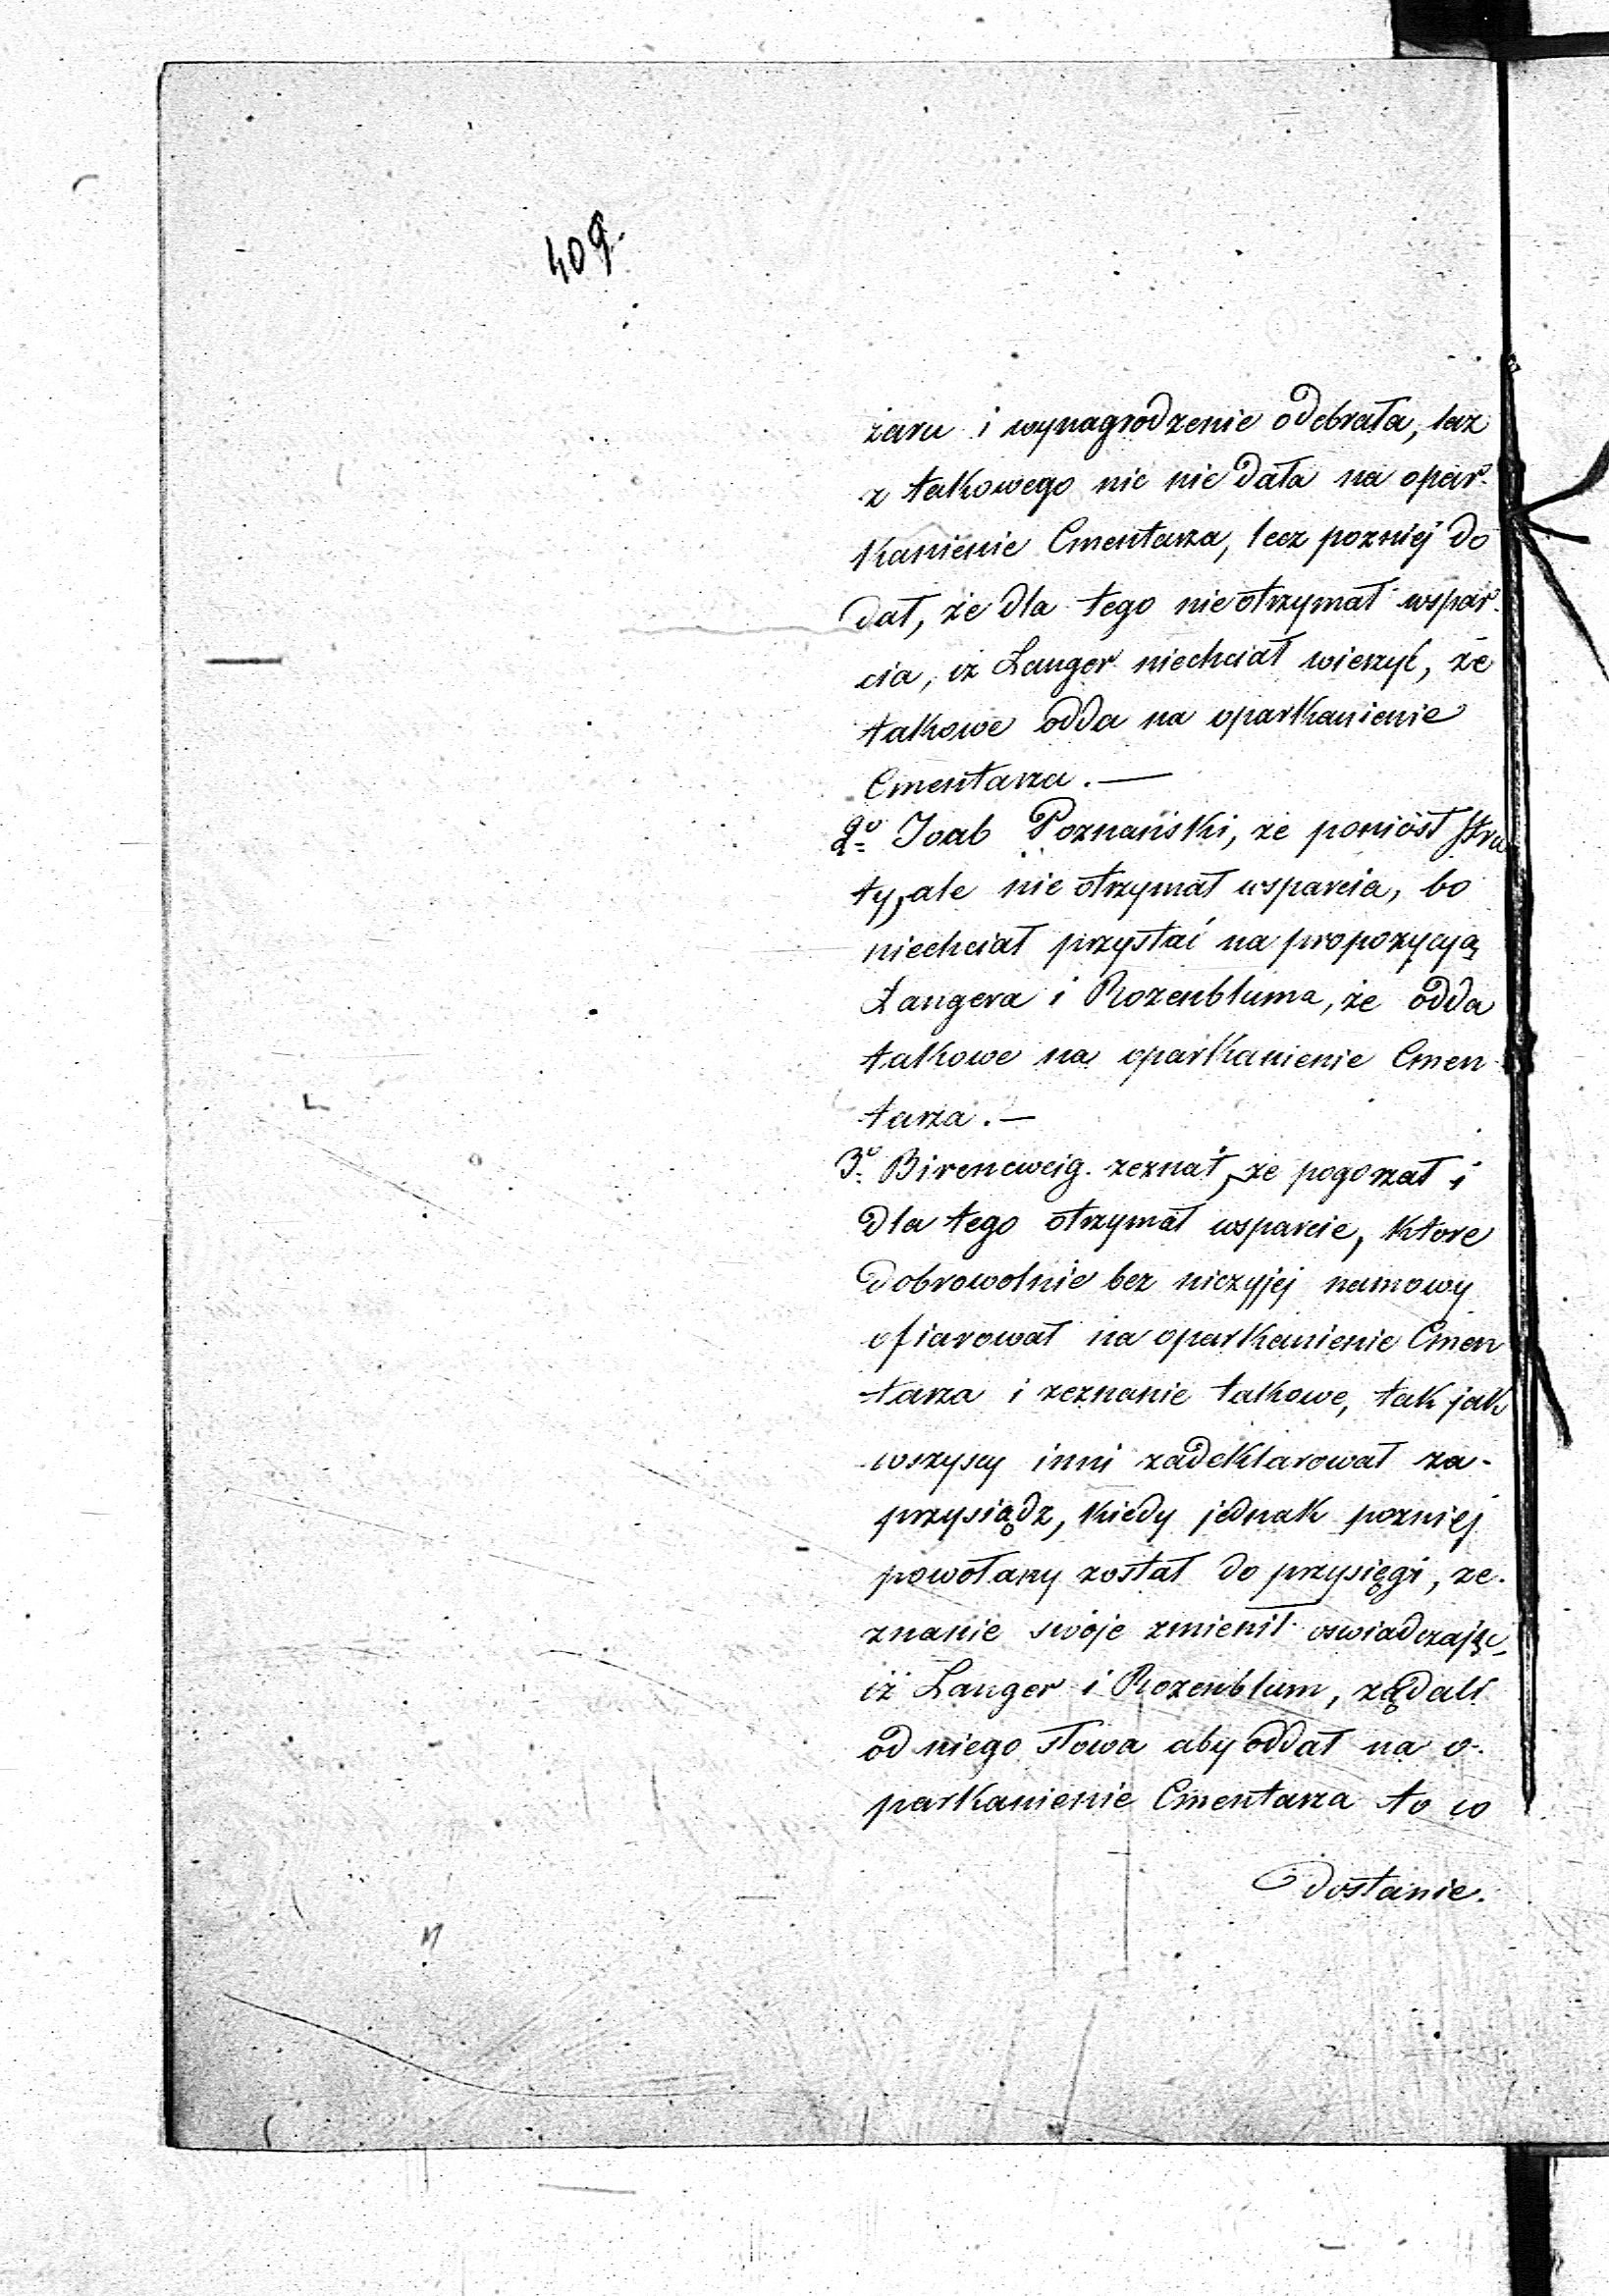 409.
żaru i wynagrodzenie odebrała, lecz
z takowego nic nie dała na opar-
kanienie Cmentarza, lecz pozniej do
dał, że dla tego nie otrzymał wspar-
cia, iż Langer niechciał wierzyć, że
takowe odda na oparkanienie
Cmentarza. —
2o Joab Poznański, że poniósł stra
ty, ale nie otrzymał wsparcia, bo
niechciał przystać na propozycyą
Langera i Rozenbluma, że odda
takowe na oparkanienie Cmen
tarza. —
3o Birencweig. zeznał, że pogorzał i
dla tego otrzymał wsparcie, które
dobrowolnie bez niczyjej namowy
ofiarował na oparkanienie Cmen
tarza i zeznanie takowe, tak jak
wszyscy inni zadeklarował za-
przysiądz, kiedy jednak pozniej
powołany został do przysięgi, ze-
znanie swoje zmienił oswiadczając,
iż Langer i Rozenblum, żądali
od niego słowa aby oddał na o-
parkanienie Cmentarza to co
dostanie.